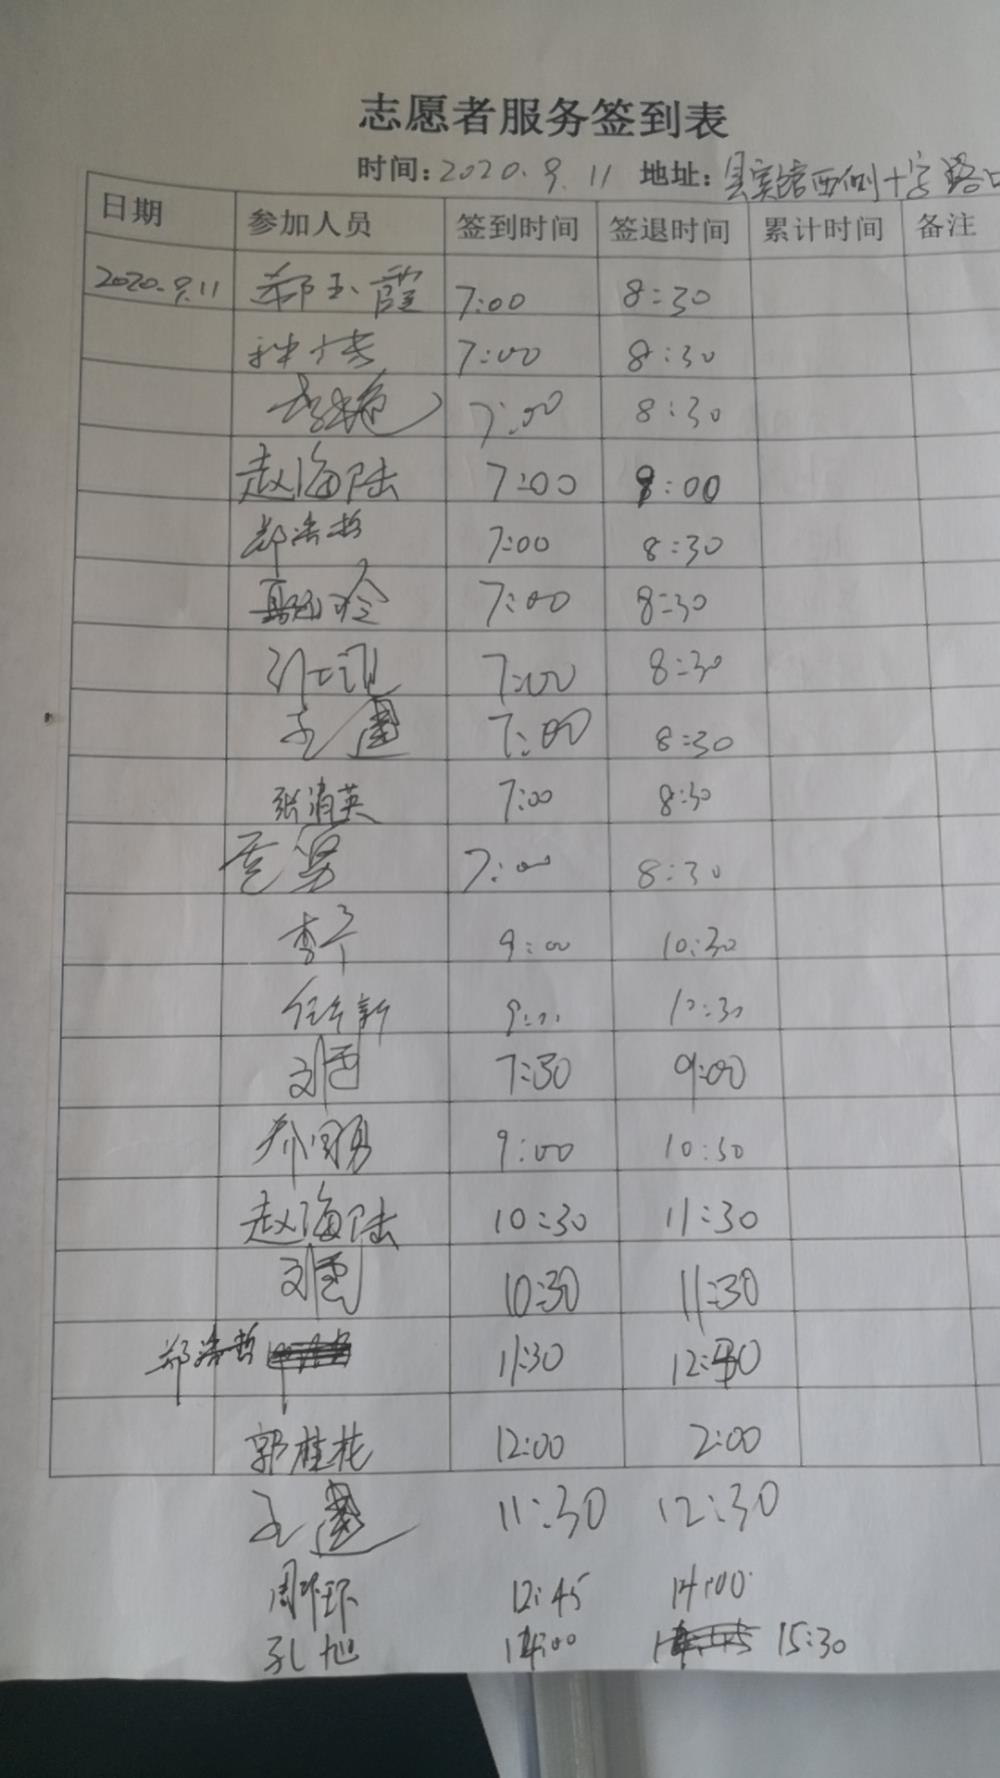 志愿者服务签到表
时间:2020.9.11 地址:县实验西侧十字路口
日期 参加人员 签到时间 签退时间 累计时间 备注
2020.9.11 郝玉霞 7:00 8:30
7:00 8:30
7:00 8:30
赵海陆 7:00 9:00
郑浩哲 7:00 8:30
7:00 8:30
7:00 8:30
7:00 8:30
张消英 7:00 8:30
7:00 8:30
李 9:00 10:30
任 新 9:00 10:30
刘 7:30 9:00
乔国勇 9:00 10:30
赵海陆 10:30 11:30
刘 10:30 11:30
郑浩哲 11:30 12:30
郭桂花 12:00 2:00
11:30 12:30
周 环 12:45 14:00
孔旭 14:00 15:30